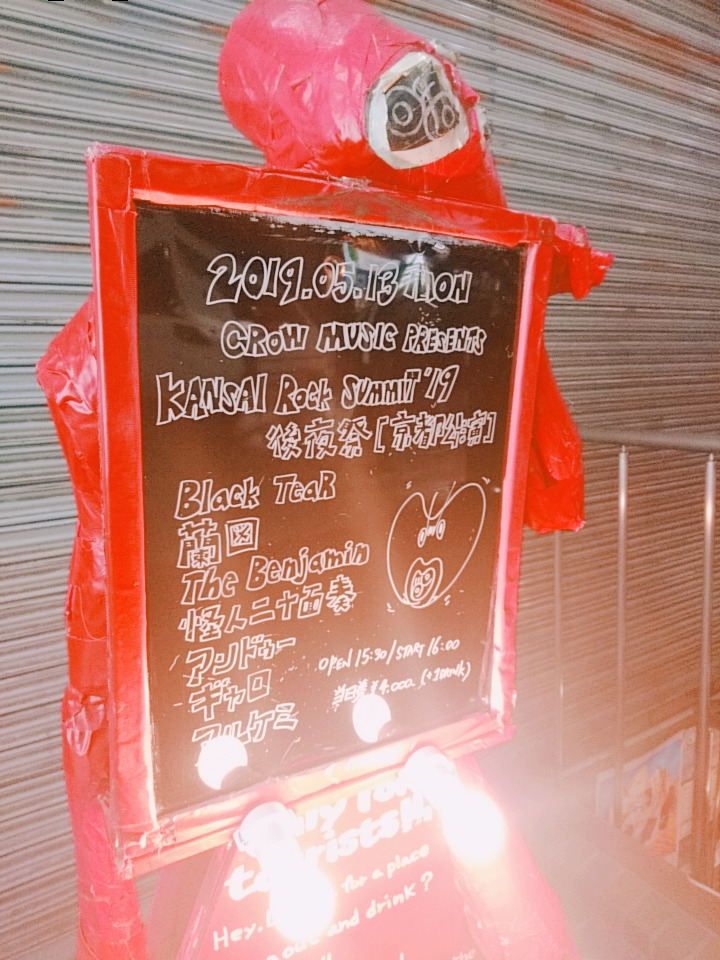 2019.05.13 MON
CROW MUSIC PRESENTS
KANSAI ROCK SUMMIT '19
後夜祭 [京都公演]
Black TeaR
蘭図
The Benjamin
怪人二十面奏
アンドゥー
ギャロ
アルケミ
OPEN 15:30 / START 16:00
当日券 ¥4,000. (+1DRINK)
for a place
Hey,
and drink?
the